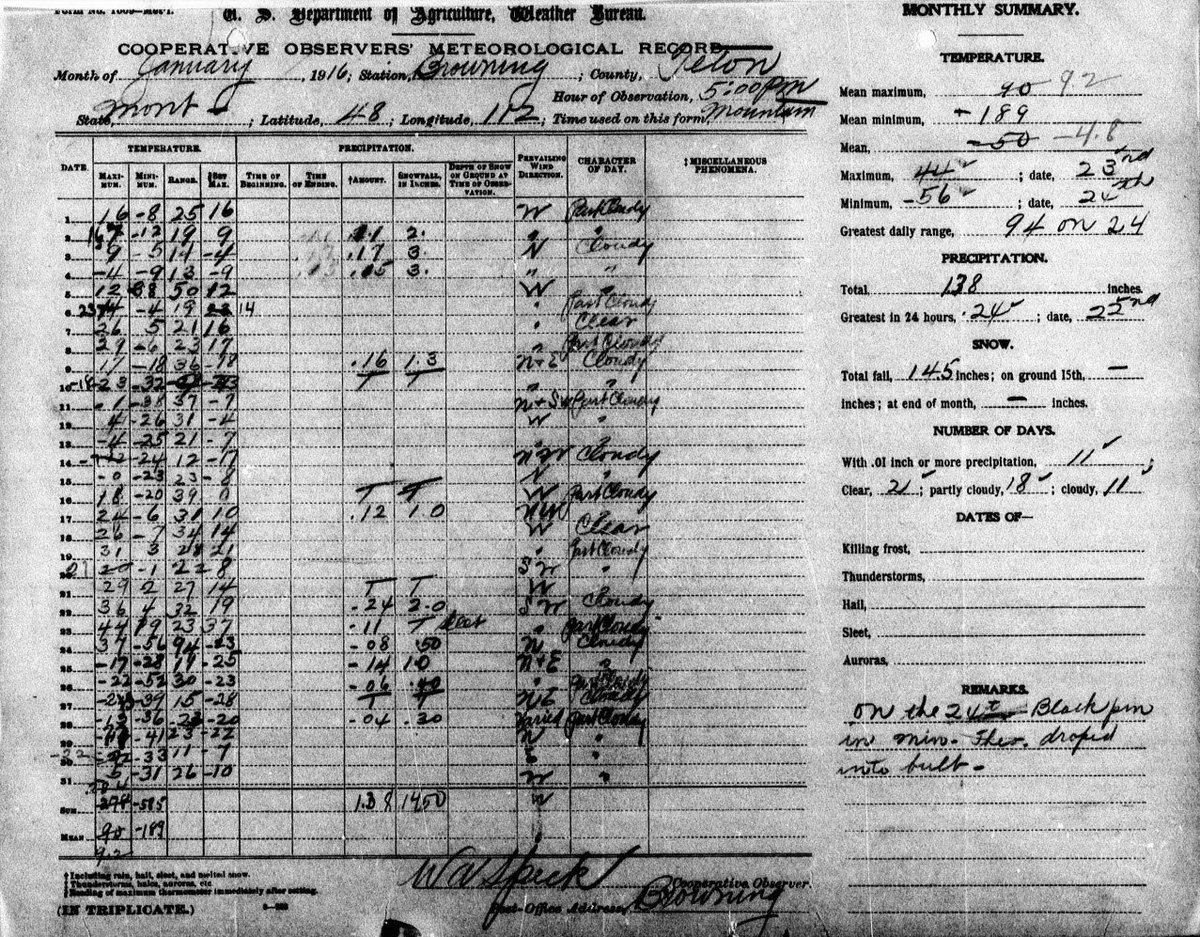 Form No. 1009—Met'l.
U. S. Department of Agriculture, Weather Bureau.
COOPERATIVE OBSERVERS' METEOROLOGICAL RECORD
Month of January, 1916; Station, Browning; County, Teton
Hour of Observation, 5:00 pm
State, Mont; Latitude, 48; Longitude, 112; Time used on this form, Mountain
DATE TEMPERATURE. PRECIPITATION. PREVAILING WIND DIRECTION. CHARACTER OF DAY. ‡MISCELLANEOUS PHENOMENA.
MAXIMUM. MINIMUM. RANGE. ‡SET MAX. TIME OF BEGINNING. TIME OF ENDING. †AMOUNT. SNOWFALL, IN INCHES. DEPTH OF SNOW ON GROUND AT TIME OF OBSERVATION.
1 16 -8 25 16 W Part Cloudy
2 -12 19 9 .11 2. "
3 9 -5 14 -4 .17 3. N Cloudy
4 -4 -9 13 -9 .05 3. " "
5 12 -38 50 12 W "
6 -4 19 14 " Part Cloudy
7 26 5 21 16 " Clear
8 29 -6 23 17 " Part Cloudy
9 17 -18 36 -18 .16 1.3 N+E Cloudy
10 -23 -32 T T " "
11 -1 -38 37 -7 N+SW Part Cloudy
12 4 -26 31 -4 W "
13 -4 -25 21 -7 "
14 -24 12 -17 NW Cloudy
15 -0 -23 23 -8 N "
16 18 -20 39 0 T T W Part Cloudy
17 24 -6 31 10 .12 1.0 NW "
18 26 -7 34 14 W Clear
19 31 3 28 21 " Part Cloudy
20 -1 22 8 SW "
21 29 2 27 14 T T W "
22 36 4 32 19 .24 2.0 SW Cloudy
23 44 19 23 37 .11 T Sleet " Part Cloudy
24 37 -56 94 -23 .08 .50 N Cloudy
25 -17 -28 19 -25 .14 1.0 N+E "
26 -22 -52 30 -23 .06 .40 Part Cloudy
27 -39 15 -28 T T NE Cloudy
28 -13 -36 -23 -20 .04 .30 Varied Part Cloudy
29 -41 23 -22 N "
30 -33 11 -7 E "
31 5 -31 26 -10 W "
SUM -585 1.38 1450 W
MEAN 90 -189 "
92
† Including rain, hail, sleet, and melted snow.
‡ Thunderstorms, halos, auroras, etc
‡ Reading of maximum thermometer immediately after setting.
W A Speck Cooperative Observer.
(IN TRIPLICATE.) Post-Office Address, Browning
MONTHLY SUMMARY.
TEMPERATURE.
Mean maximum, 90 92
Mean minimum, -189
Mean, -50 -4.8
Maximum, 44; date, 23nd
Minimum, -56; date, 24th
Greatest daily range, 94 on 24
PRECIPITATION.
Total, 1.38 inches.
Greatest in 24 hours, .24; date, 22nd
SNOW.
Total fall, 14.5 inches; on ground 15th, —
inches; at end of month, — inches.
NUMBER OF DAYS.
With .01 inch or more precipitation, 11;
Clear, 2; partly cloudy, 18; cloudy, 11
DATES OF—
Killing frost,
Thunderstorms,
Hail,
Sleet,
Auroras,
REMARKS.
On the 24th Black pin
in min. Ther. droped
into bult -